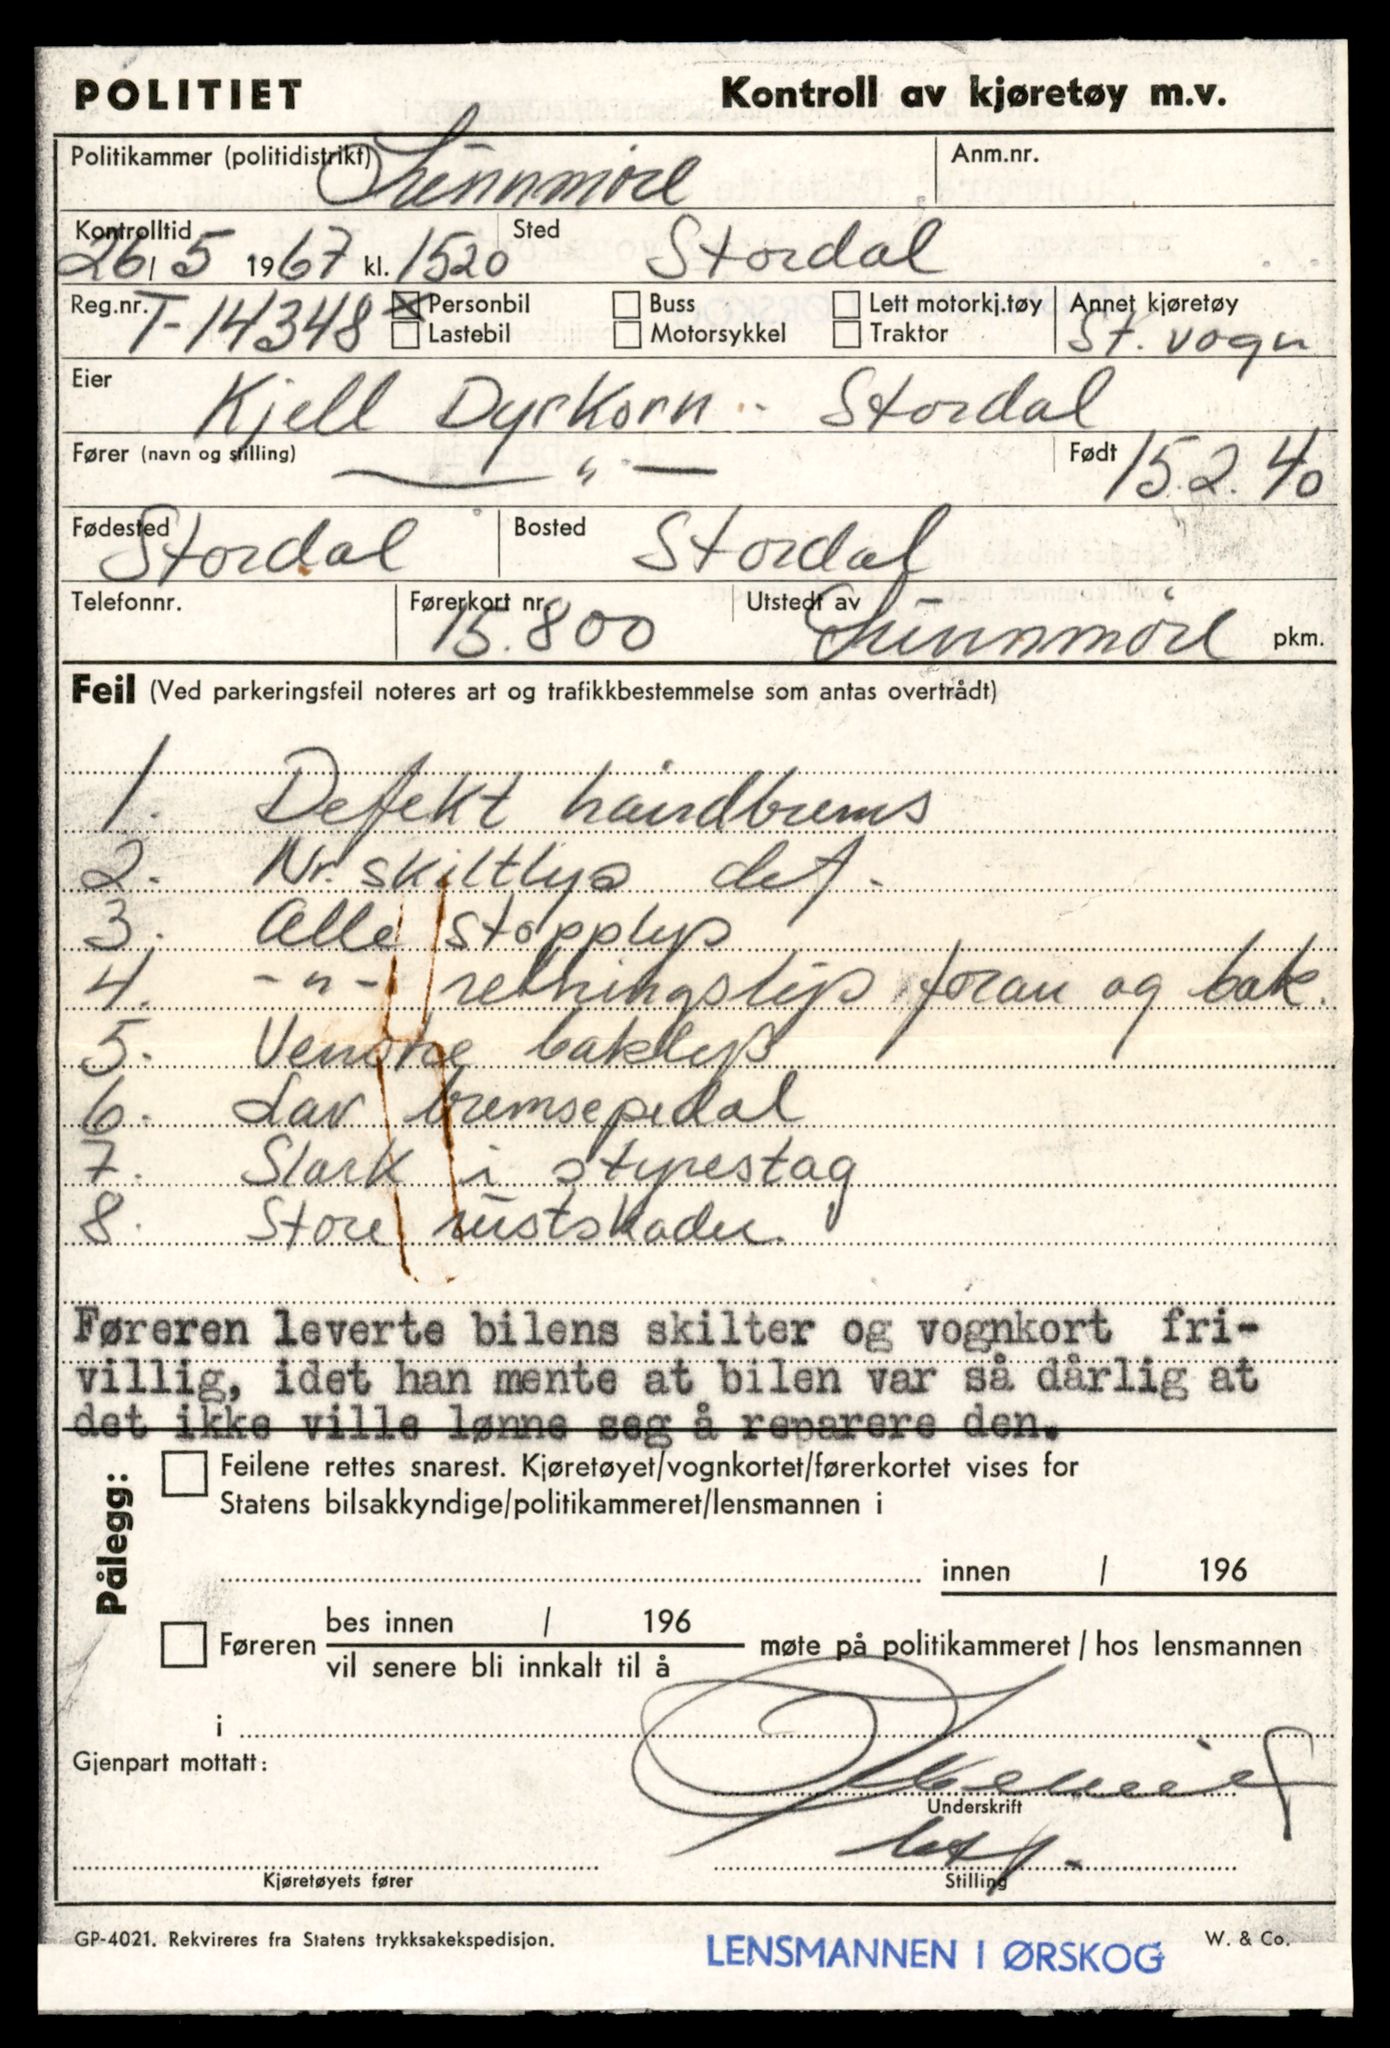 POLITIET Kontroll av kjøretøy m.v.
Politikammer (politidistrikt) Sunnmöre Anm.nr.
Kontrolltid 26/5 1967 kl. 1520 Sted Stordal
Reg.nr. T-14348 Personbil Buss Lett motorkj.tøy Annet kjøretøy
Lastebil Motorsykkel Traktor St. vogn
Eier Kjell Dyrkorn - Stordal
Fører (navn og stilling) — " — Født 15.2.40
Fødested Stordal Bosted Stordal
Telefonnr. Førerkort nr. 15.800 Utstedt av Sunnmöre pkm.
Feil (Ved parkeringsfeil noteres art og trafikkbestemmelse som antas overtrådt)
1. Defekt håndbrems
2. Nr. skiltlys def.
3. Alle stopplys
4. -"- retningslys foran og bak.
5. Venstre baklys
6. Lav bremsepedal
7. Slark i styrestag
8. Store rustskader.
Føreren leverte bilens skilter og vognkort fri-
villig, idet han mente at bilen var så dårlig at
det ikke ville lønne seg å reparere den.
Pålegg:
Feilene rettes snarest. Kjøretøyet/vognkortet/førerkortet vises for
Statens bilsakkyndige/politikammeret/lensmannen i
innen / 196
bes innen / 196
Føreren møte på politikammeret / hos lensmannen
vil senere bli innkalt til å
i
Gjenpart mottatt:
Underskrift
Kjøretøyets fører Stilling
GP-4021. Rekvireres fra Statens trykksakekspedisjon. W. & Co.
LENSMANNEN I ØRSKOG